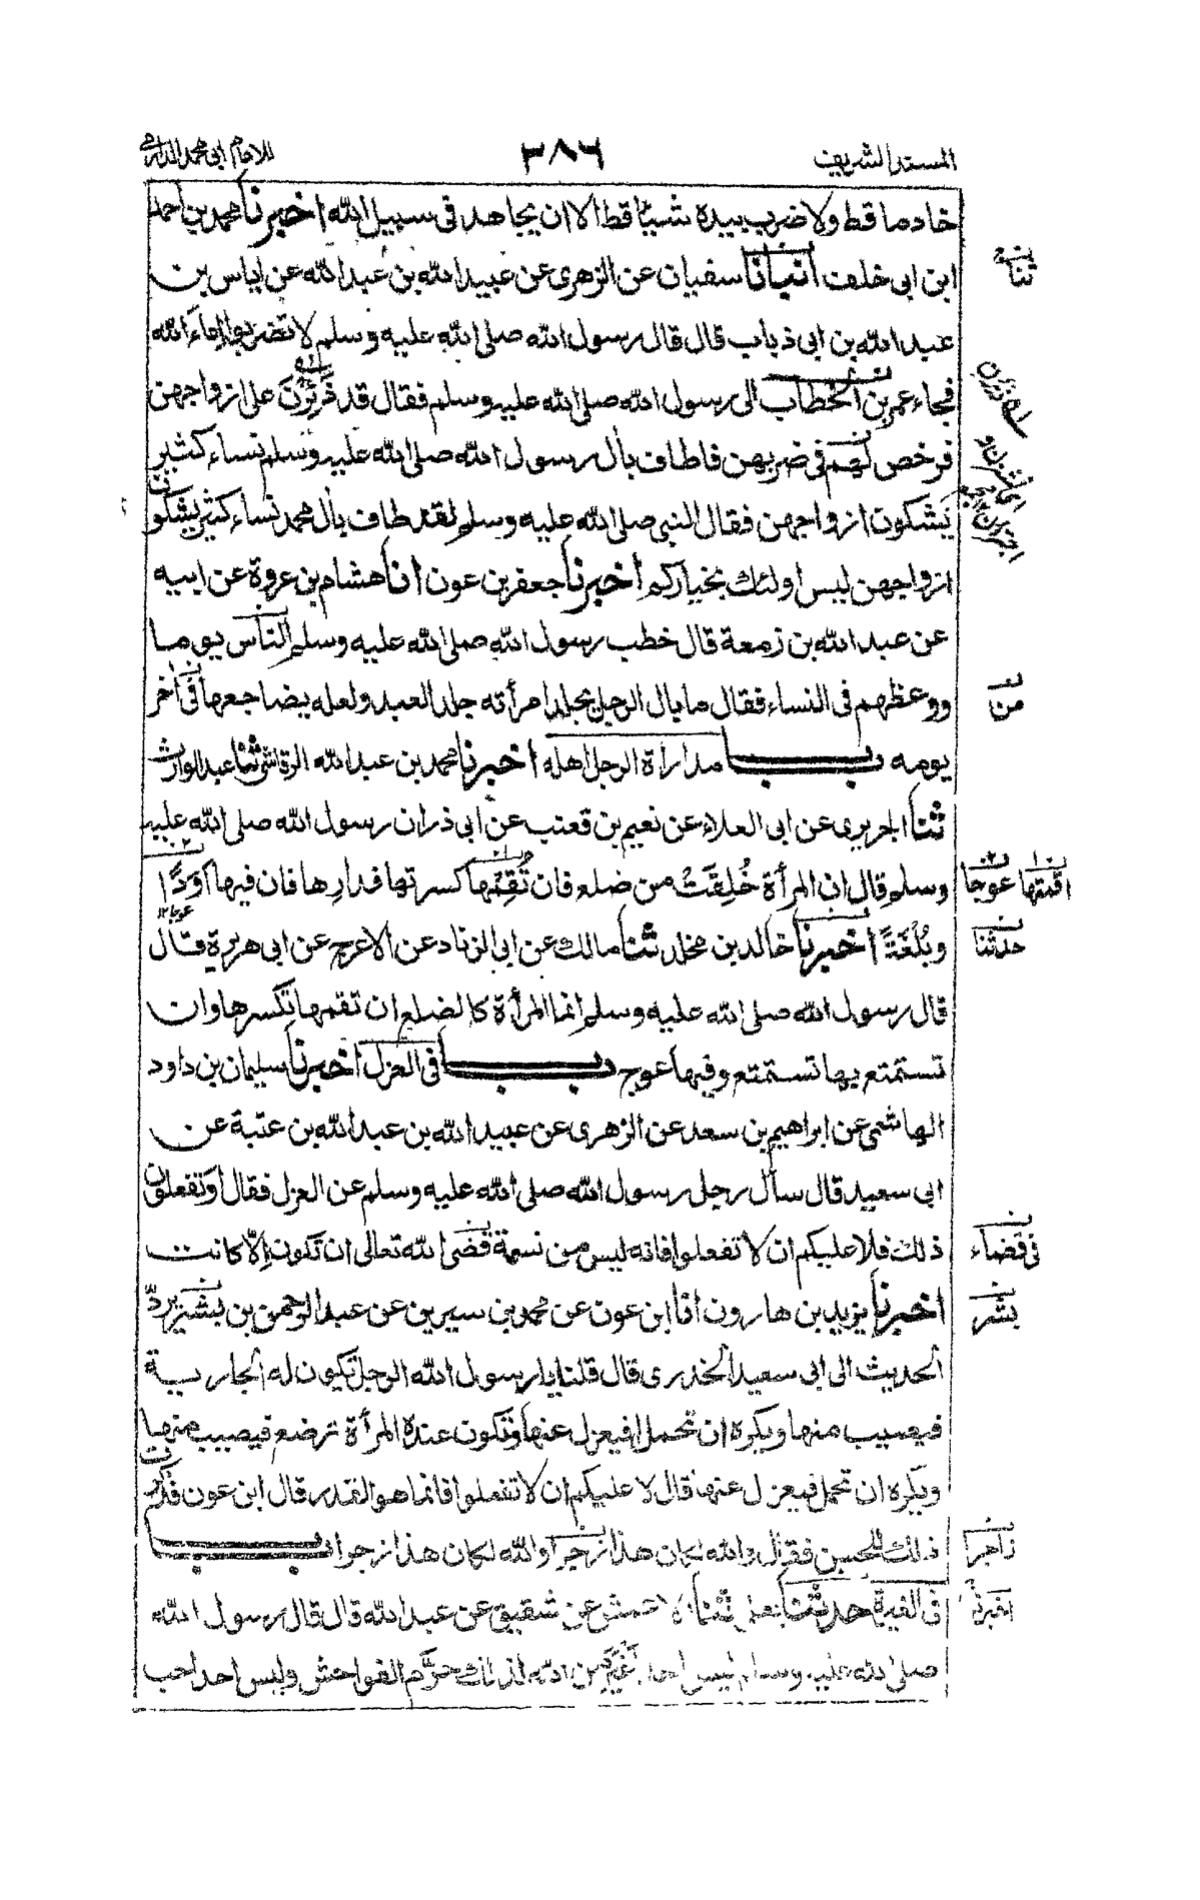 المسند الشريف
٣٨٦
للامام ابى محمد الدارمى
خادما قط ولا ضرب بيده شيئا قط الا ان يجاهد فى سبيل الله اخبرنا محمد بن احمد
ابن ابى خلف انبانا سفيان عن الزهرى عن عبيد الله بن عبد الله عن اياس بن
عبد الله بن ابى ذباب قال قال رسول الله صلى الله عليه وسلم لا تضربوا اماء الله
فجاء عمر بن الخطاب الى رسول الله صلى الله عليه وسلم فقال قد ذَئِرْنَ على ازواجهن
فرخص لهم فى ضربهن فاطاف بأل رسول الله صلى الله عليه وسلم نساء كثير
يشكون ازواجهن فقال النبى صلى الله عليه وسلم لقد طاف بأل محمد نساء كثير يشكون
ازواجهن ليس اولئك بخياركم اخبرنا جعفر بن عون انا هشام بن عروة عن ابيه
عن عبد الله بن زمعة قال خطب رسول الله صلى الله عليه وسلم الناس يوما
ووعظهم فى النساء فقال ما بال الرجل يجلد امرأته جلد العبد ولعله يضاجعها فى أخر
يومه باب مداراة الرجل اهله اخبرنا محمد بن عبد الله الرقاشى ثنا عبد الوارث
ثنا الجريرى عن ابى العلاء عن نعيم بن قعنب عن ابى ذر ان رسول الله صلى الله عليه
وسلم قال ان المرأة خُلِقَتْ من ضلع فان تُقِمْها كسرتها فدارِها فان فيها أَوَدًا
وبُلْغَةً اخبرنا خالد بن مخلد ثنا مالك عن ابى الزناد عن الاعرج عن ابى هريرة قال
قال رسول الله صلى الله عليه وسلم انما المرأة كالضلع ان تقمها تكسرها وان
تستمتع بها تستمتع وفيها عوج باب فى العزل اخبرنا سليمان بن داود
الهاشمى عن ابراهيم بن سعد عن الزهرى عن عبيد الله بن عبد الله بن عتبة عن
ابى سعيد قال سأل رجل رسول الله صلى الله عليه وسلم عن العزل فقال أوتفعلون
ذلك فلا عليكم ان لا تفعلوا فانه ليس من نسمة قضى الله تعالى ان تكون الّا كانت
اخبرنا يزيد بن هارون انا ابن عون عن محمد بن سيرين عن عبد الرحمن بن بشير يردّ
الحديث الى ابى سعيد الخدرى قال قلنا يا رسول الله الرجل تكون له الجارية
فيصيب منها ويكره ان تحمل افيعزل عنها وتكون عنده المرأة ترضع فيصيب منها
ويكره ان تحمل فيعزل عنها قال لا عليكم ان لا تفعلوا فانما هو القدر قال ابن عون فذكرت
ذلك للحسن فقال والله لكان هذا زجرا والله لكان هذا زجرا باب
فى الغيرة حدثنا يعلى ثنا الاعمش عن شقيق عن عبد الله قال قال رسول الله
صلى الله عليه وسلم ليس احد أغيَر من الله لذلك حرّم الفواحش وليس احد احب
ثنا
منا
اقمتها
عوجا
حدثنا
فى قضاء
بشر
زاجرا
اخبرنا